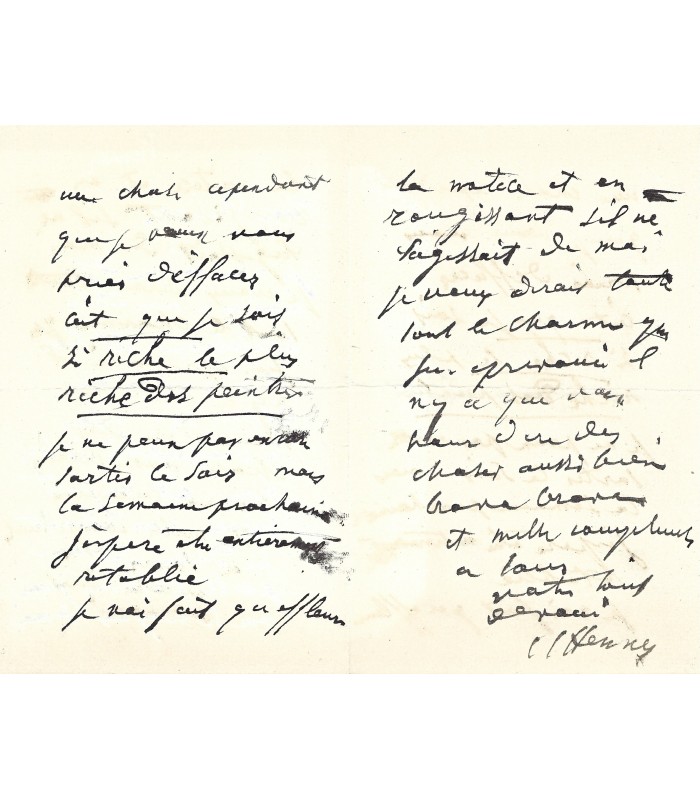 une chose cependant
que je veux vous
prier d'effacer
c'est que je sois
si riche le plus
riche des peintres
je ne peux pas encore
sortir le soir mais
la semaine prochaine
j'espère être entièrement
rétablie
je n'ai fait qu'effleurer
la notice et en
rougissant s'il ne
s'agissait de moi
je vous dirais toute
tout le charme que
j'ai éprouvé il
n'y a que vous
pour dire des
choses aussi bien
bravo bravo
et mille compliments
à tous
votre tout
dévoué
JJHenner